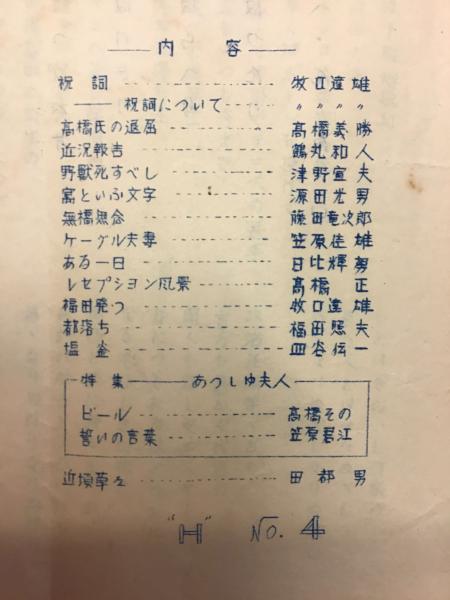 ——内　容——
祝詞 ………… 牧口達雄
—— 祝詞について …… 〃〃〃〃
高橋氏の退屈 ………… 高橋義勝
近況報告 ………… 鶴丸和人
野獣死すべし ………… 津野宣夫
寓といふ文字 ………… 源田光男
無橋無念 ………… 藤田竜次郎
ケーグル夫妻 ………… 笠原佳雄
ある一日 ………… 日比輝男
レセプション風景 ………… 高橋　正
福田発つ ………… 牧口達雄
都落ち ………… 福田照夫
塩釜 ………… 四谷伝一
特集 —— あっしゆ夫人
ビール ………… 高橋その
誓いの言葉 ………… 笠原君江
近頃草々 ………… 田都男
"H" NO. 4